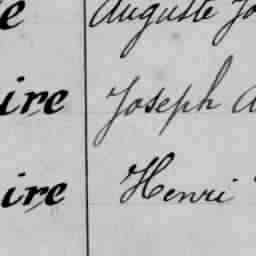 e Auguste Jo
ire Joseph A
ire Henri